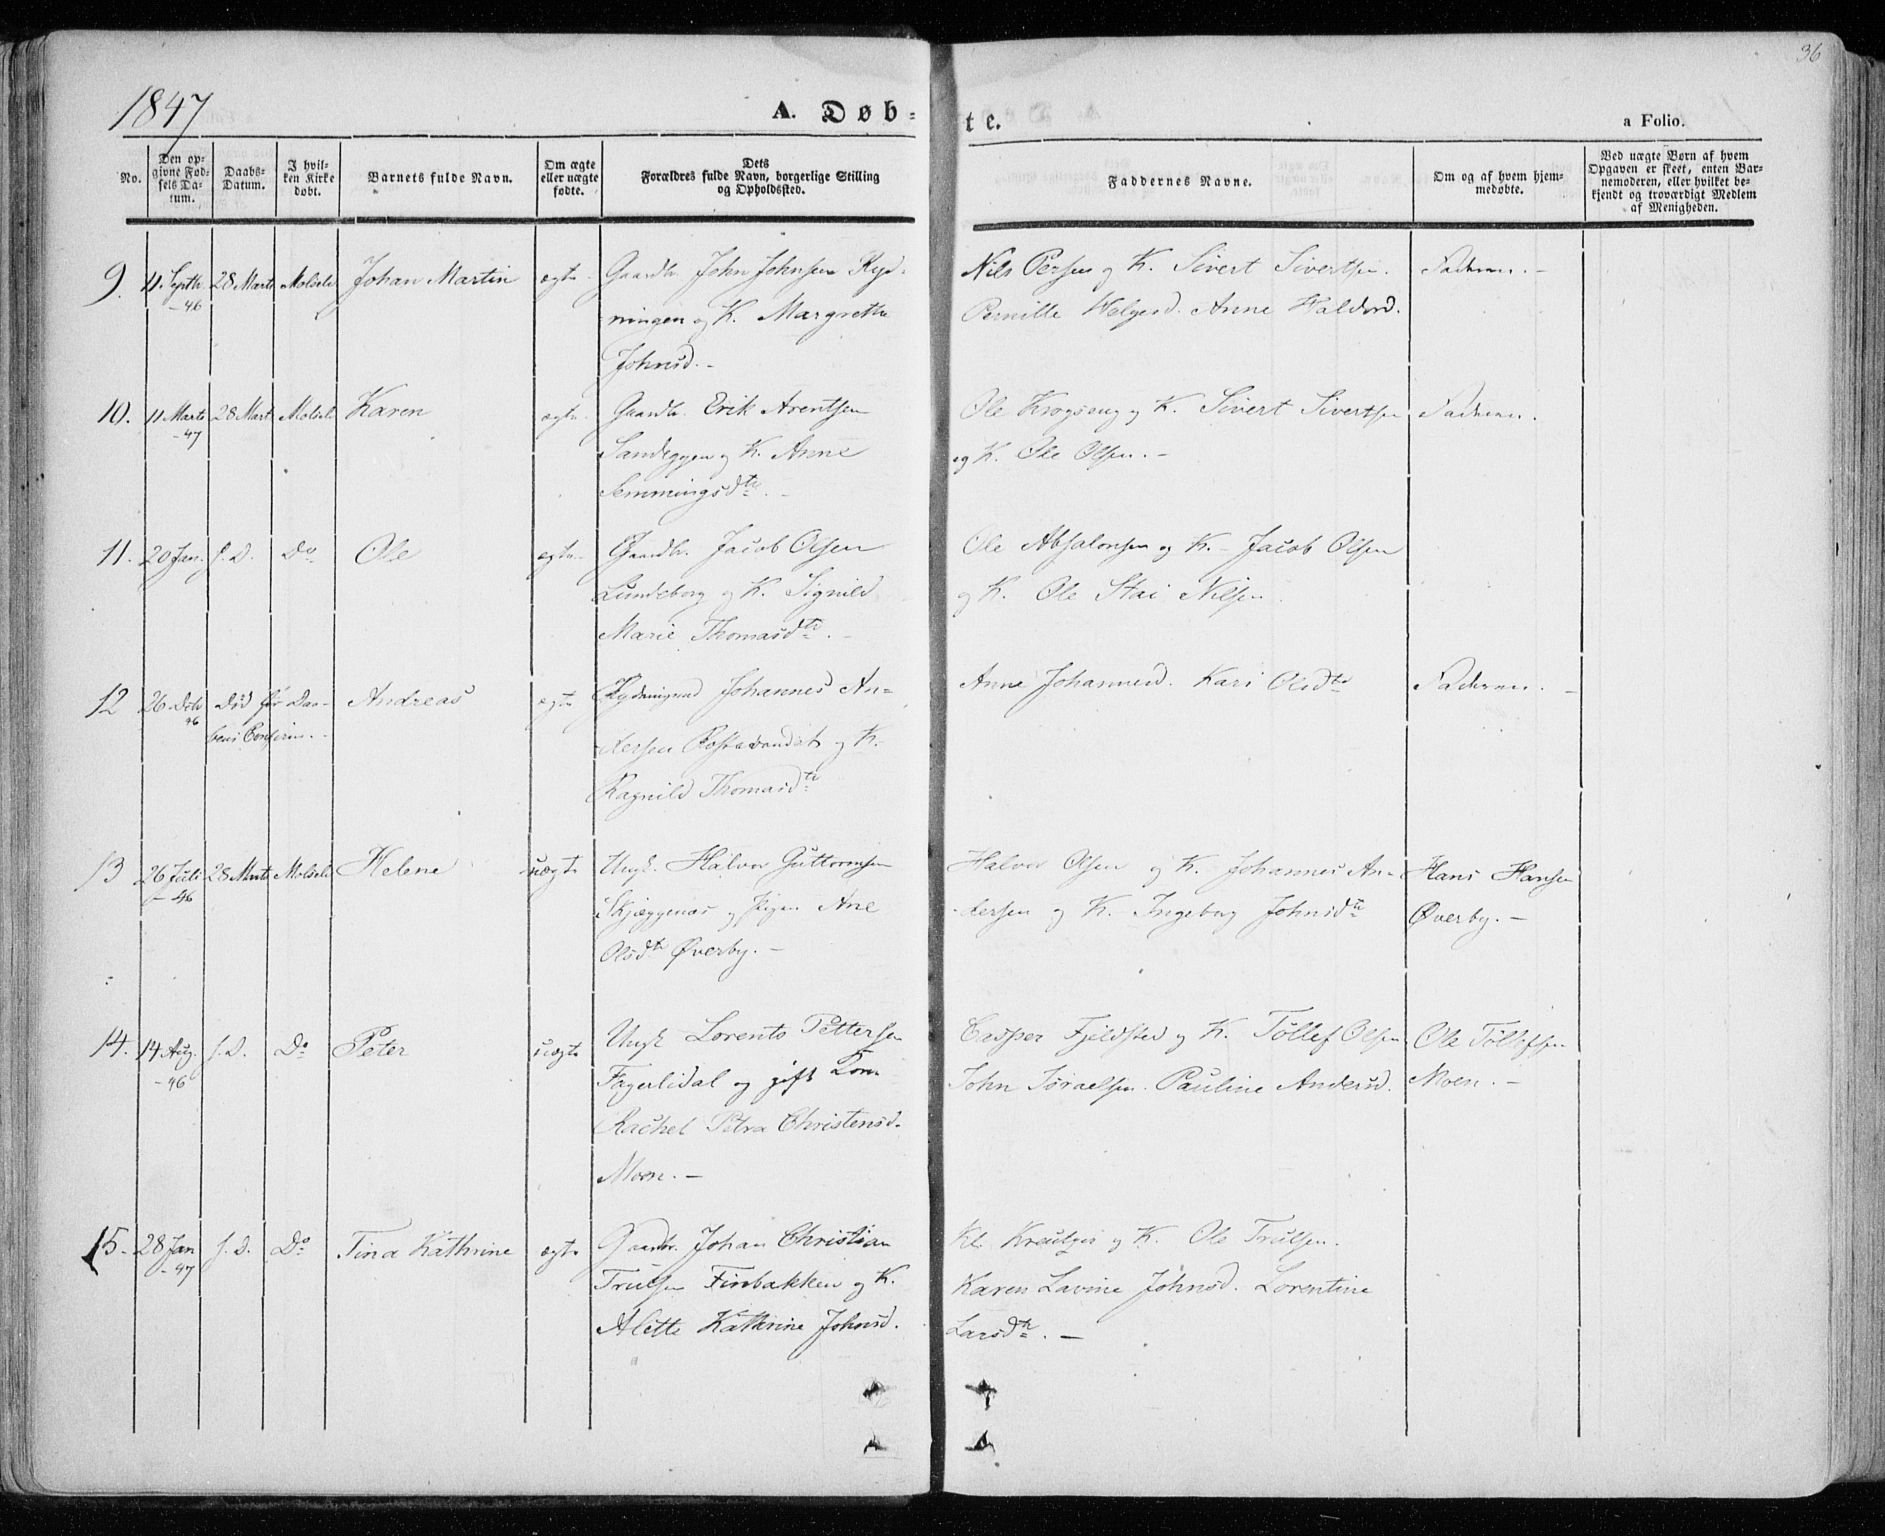 36
1847
A. Døb=
te.
a Folio.
No.
Den op=
givne Fød=
sels Da=
tum.
Daabs=
Datum.
I hvil=
ken Kirke
døbt.
Barnets fulde Navn.
Om ægte
eller uægte
fødte.
Dets
Forældres fulde Navn, borgerlige Stilling
og Opholdssted.
Faddernes Navne.
Om og af hvem hjem=
medøbte.
Ved uægte Børn af hvem
Opgaven er skeet, enten Bar=
nemoderen, eller hvilket be=
kjendt og troværdigt Medlem
af Menigheden.
9. 11 Septb. 28 Marts Molselv Johan Martin ægte Gaardb. John Johnsen Ryd= Nils Persen og K. Sivert Sivertsen. Faderen. -
-46 ningen og K. Margrethe Pernille Helgesd. Anne Haldord.
Johnsd. -
10. 11 Marts 28 Mart Molselv Karen ægte Gaardb. Erik Arentsen Ole Krogseng og K. Sivert Sivertsen Faderen.
-47 Sandeggen og K. Anne og K. Ole Olsen. -
Semmingsdtr. -
11. 20 Jan. s. D. Do Ole ægte Gaardb. Jacob Olsen Ole Absalonsen og K. - Jacob Olsen
Lundeborg og K. Signild og K. Ole Stai Nilsen
Marie Thomasdtr. -
12 26 Octb Død før Daa= Andreas ægte Rydningsmd Johannes An= Anne Johannesd. Kari Olsdtr Faderen. -
46 bens Confirm. - dersen Rostavandet og K.
Ragnild Thomasdtr
13 26 Juli 28 Marts Molselv Helene uægte Ungk. Halvor Guttormsen Halvor Olsen og K. Johannes An= Hans Hansen
-46 Skjæggenæs og Pigen Ane dersen og K. - Ingeborg Johnsdtr Øverby. -
Olsdtr Øverby. -
14. 14 Aug. s. D. Do Peter uægte Ungk Lorents Pettersen Casper Fjeldsted og K. Tøllef Olsen Ole Tøllefsen
-46 Fagerlidal og gift Kone John Israelsen. Pauline Andersd. Moen. -
Rachel Petra Christensd.
Moen. -
15. 28 Jan s. D. Do Tina Kathrine ægte Gaardbr. Johan Christian Kl. Kreutzer og K. Ole Trulsen.
-47 Trulsen Finbakken og K. Karen Lavine Johnsd. Lorentine
Alette Kathrine Johnsd. Larsdtr. -